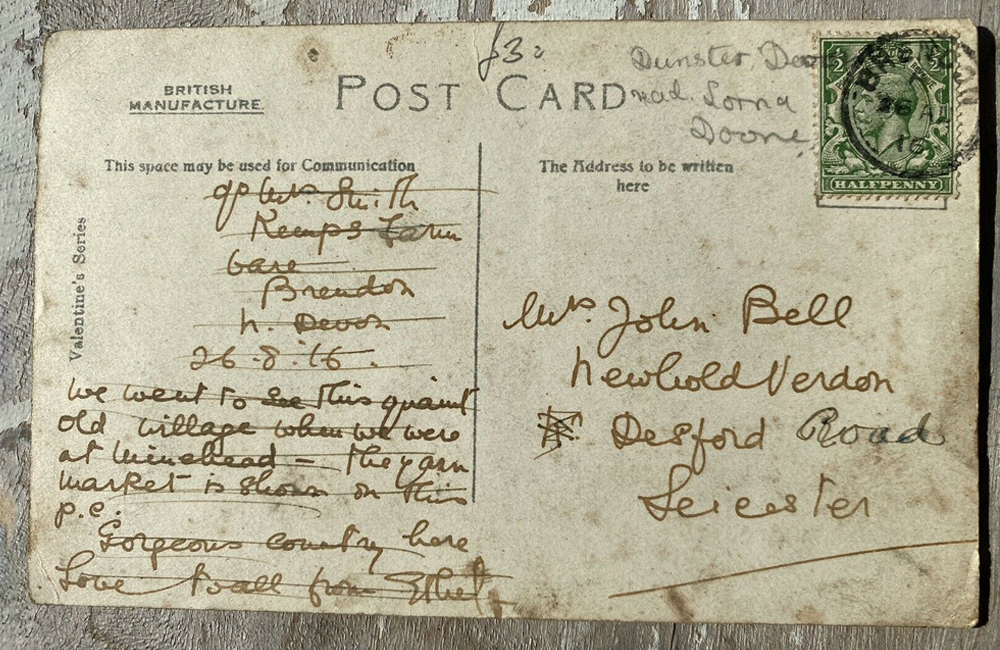 £3
Dunster, Dev
read. Lorna
Doone
BRITISH
MANUFACTURE.
POST CARD
1/2
BRENDON
26 AU
16
HALFPENNY
This space may be used for Communication
The Address to be written
here
Valentine's Series
c/o Mrs. Smith
Kemps Farm
Oare
Brendon
N. Devon
26.8.16.
We went to see this quaint
old village when we were
at Minehead — the yarn
market is shown on this
p.c.
Gorgeous country here
Love to all from Ethel
Mrs. John Bell
Newbold Verdon
Desford Road
Leicester